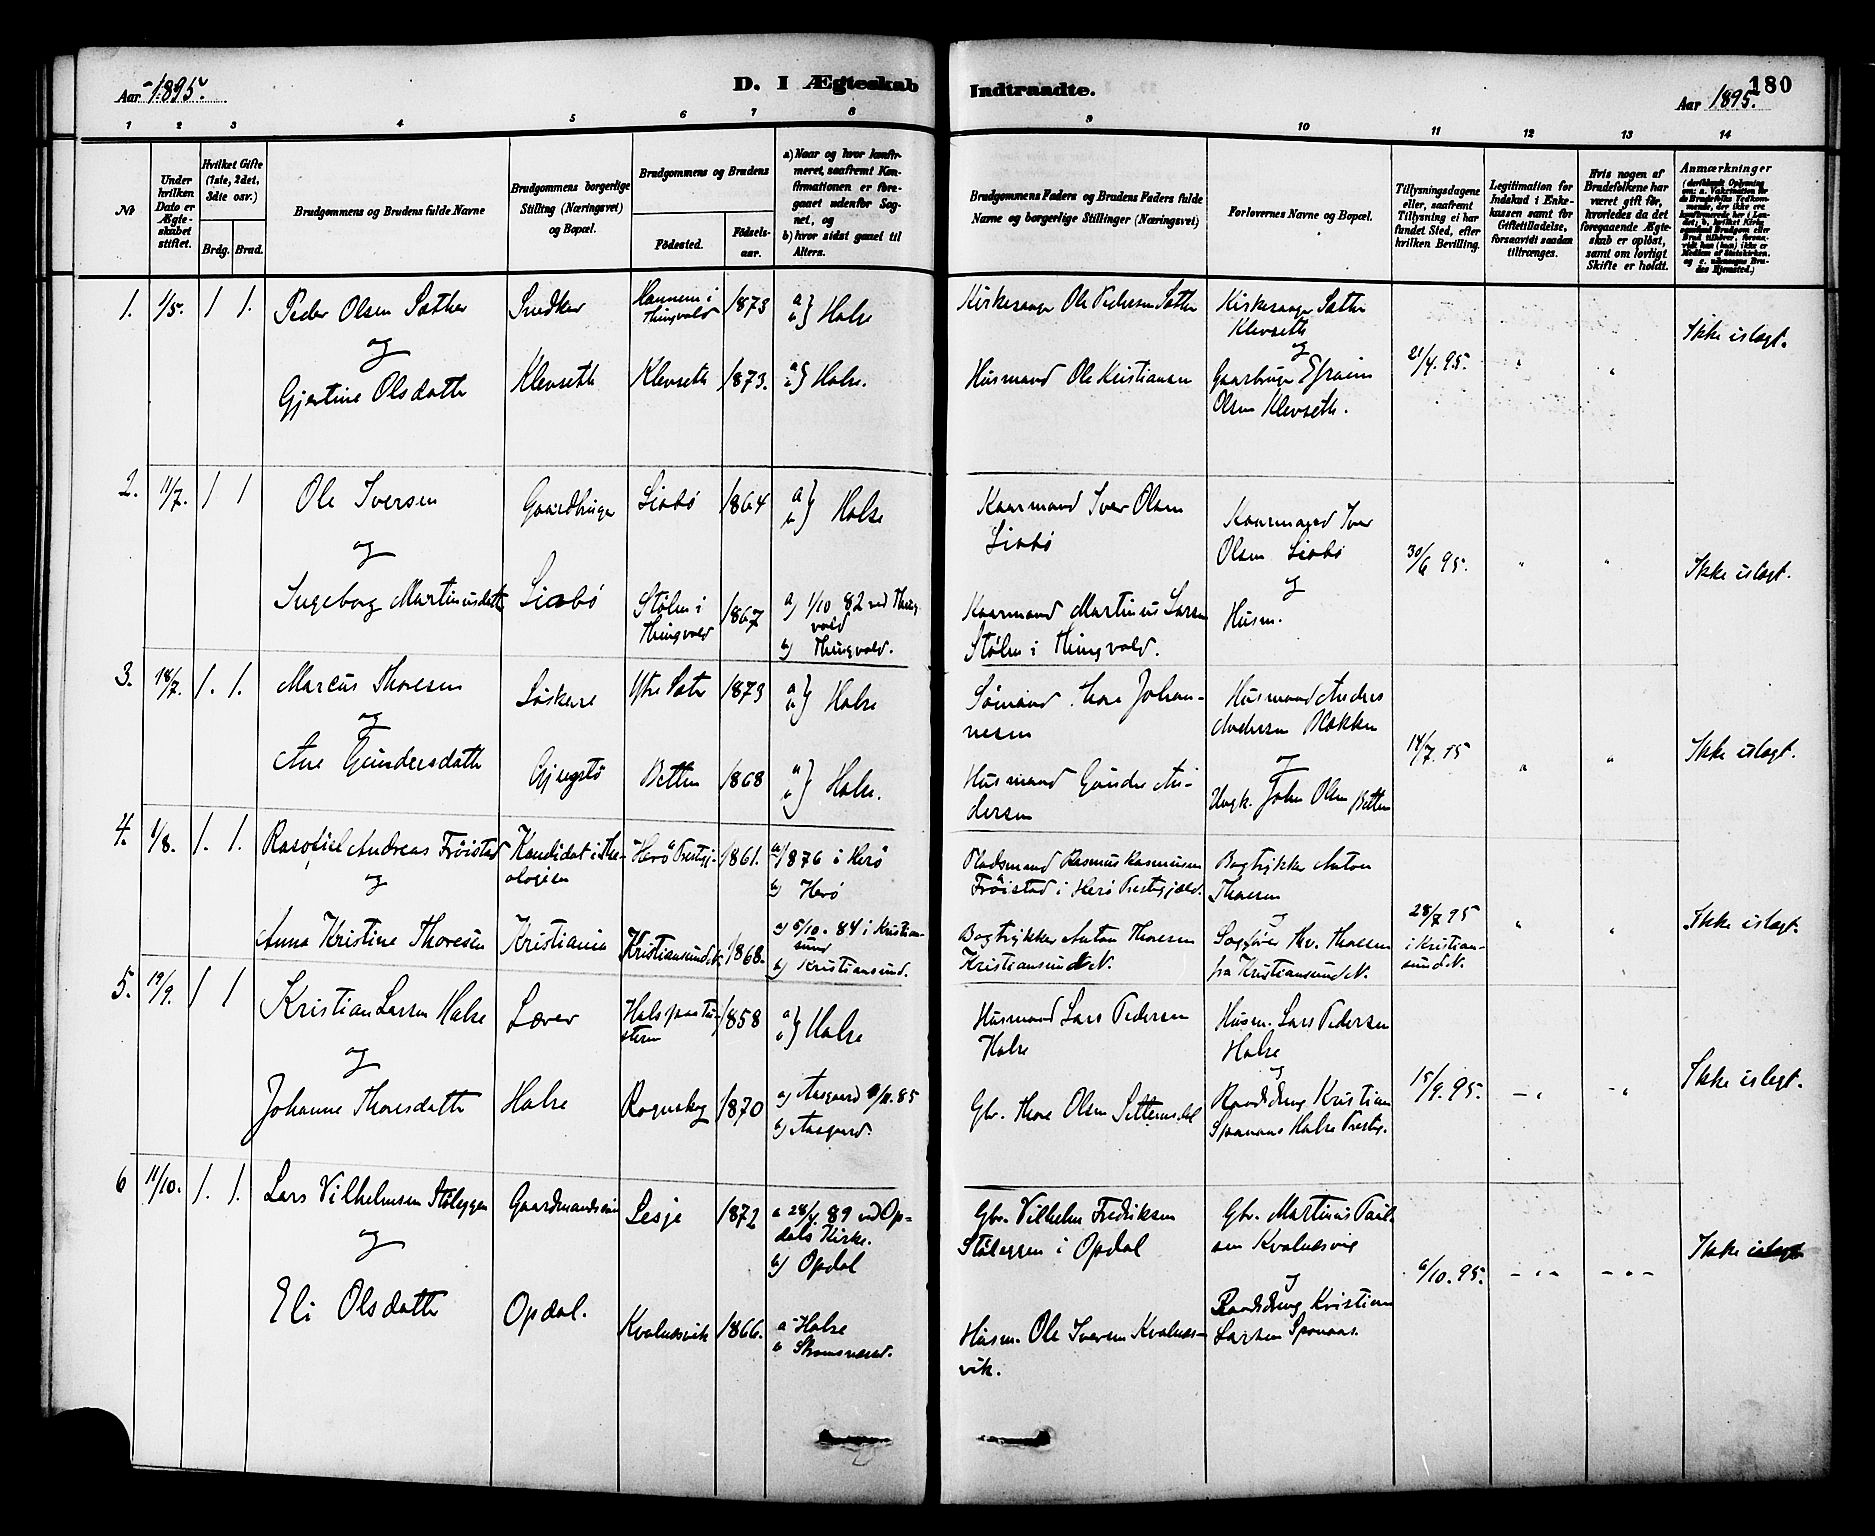 Aar 1895.
D. I Ægteskab
Indtraadte.
180
Aar 1895.
1 2 3 4 5 6 7 8 9 10 11 12 13 14
№
Under hvilken Dato er Ægteskabet stiftet.
Hvilket Gifte (1ste, 2det, 3die osv.)
Brdg. Brud.
Brudgommens og Brudens fulde Navne
Brudgommens borgerlige Stilling (Næringsvei) og Bopæl.
Brudgommens og Brudens
Fødested.
Fødselsaar.
a) Naar og hvor konfirmeret, saafremt Konfirmationen er foregaaet udenfor Sognet, og
b) hvor sidst gaaet til Alters.
Brudgommens Faders og Brudens Faders fulde Navne og borgerlige Stillinger (Næringsvei)
Forlovernes Navne og Bopæl.
Tillysningsdagene eller, saafremt Tillysning ei har fundet Sted, efter hvilken Bevilling.
Legitimation for Indskud i Enkekassen samt for Giftetilladelse, forsaavidt saadan tiltrænges.
Hvis nogen af Brudefolkene har været gift før, hvorledes da det foregaaende Ægteskab er opløst, samt om lovligt Skifte er holdt.
Anmærkninger
1. 1/5. 1 1.
Peder Olsen Sæther
og
Gjertine Olsdatter
Snedker
Klevseth
Hannem i
Thingvold
Klevseth
1873
1873.
a
b } Halse
a
b } Halse.
Kirkesanger Ole Pedersen Sæther
Husmand Ole Kristiansen
Kirkesanger Sæther
Klevseth
og
Gaarbruger Efraim
Olsen Klevseth.
21/4. 95.
Ikke islægt.
2. 11/7. 1 1
Ole Iversen
og
Ingeborg Martinusdatter
Gaardbruger
Liabø
Liabø
Stølen i
Thingvold
1864
1867
a
b } Halse
a) 1/10 82 ved Thingvold
b) Thingvold.
Kaarmand Iver Olsen
Liabø
Kaarmand Martinus Larsen
Stølen i Thingvold.
Kaarmand Iver
Olsen Liabø
og
Husm.
30/6 95.
Ikke islægt.
3. 18/7. 1. 1.
Marcus Thoresen
og
Ane Gundersdatter
Ytre Sæter
Betten
1873
1868
a
b } Halse
a
b } Halse.
Sømand Thore Johannesen
Husmand Gunder Andersen
Husmand Anders
Andersen Blokken
og
Ungk. John Olsen Betten
14/7. 95
Ikke islægt.
4. 1/8. 1. 1.
Andreas Frøistad
og
Anna Kristine Thoresen
Kandidat i Theologien
Kristiania
Herø Prestgj.
Kristiansund N.
1861.
1868.
a) 1876 i Herø
b) Herø
a) 5/10. 84 i Kristiansund
b) Kristiansund.
Pladsmand Rasmus Rasmussen
Frøistad i Herø Prestegjæld.
Bogtrykker Anton Thoresen
Kristiansund N.
Bogtrykker Anton
Thoresen
og
Sagfører Thv. Thoresen
fra Kristiansund N.
28/7 95
i Kristiansund N.
Ikke islægt.
5. 19/9. 1 1
Kristian Larsen Halse
og
Johanne Thoresdatter
Lærer
Halse
Rognskog
1858
1870
a
b } Halse
a) Aasgaard 85
b) Aasgaard.
Husmand Lars Pedersen
Halse
Gbr. Thore Olsen Settemsdal
Husm. Lars Pedersen
Halse
og
Kristian
Spanaas Halse Prestg.
15/9. 95.
Ikke islægt.
6 11/10. 1. 1.
Lars Vilhelmsen Støleggen
og
Eli Olsdatter
Gaardmandssøn
Opdal.
Lesje
Kvalnæsvik
1872
1866.
a 28/4. 89 ved Opdals Kirke.
b) Opdal
a Halse
b Strømsvaset.
Gbr. Vilhelm Fredriksen
Støleggen i Opdal
Husm. Ole Iversen Kvalnæsvik.
Gbr. Martinus Paulsen Kvalnæsvig
og
Kristian
Larsen Spanaas.
6/10. 95.
Ikke islægt